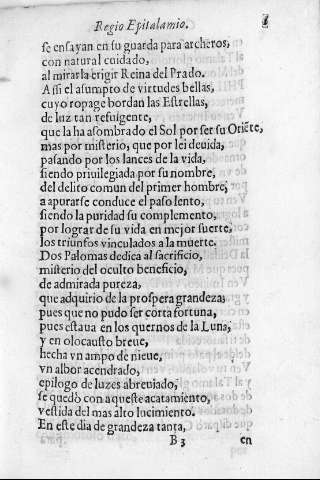 Regio Epitalamio.
se ensayan en su guarda para archeros,
con natural cuidado,
al mirarla erigir Reina del Prado.
Assi el assumpto de virtudes bellas,
cuyo ropage bordan las Estrellas,
de luz tan refulgente,
que la ha assombrado el Sol por ser su Oriẽte,
mas por misterio, que por lei deuida,
passando por los lances de la vida,
siendo priuilegiada por su nombre,
del delito comun del primer hombre,
a apurarse conduce el passo lento,
siendo la puridad su complemento,
por lograr de su vida en mejor suerte,
los triunfos vinculados a la muerte.
Dos Palomas dedica al sacrificio,
misterio del oculto beneficio,
de admirada pureza,
que adquirio de la prospera grandeza,
pues que no pudo ser corta fortuna,
pues estaua en los quernos de la Luna,
y en olocausto breue,
hecha vn ampo de nieue,
vn albor acendrado,
epilogo de luzes abreuiado,
se quedò con aqueste acatamiento,
vestida del mas alto lucimiento.
En este dia de grandeza tanta,
B 3 en